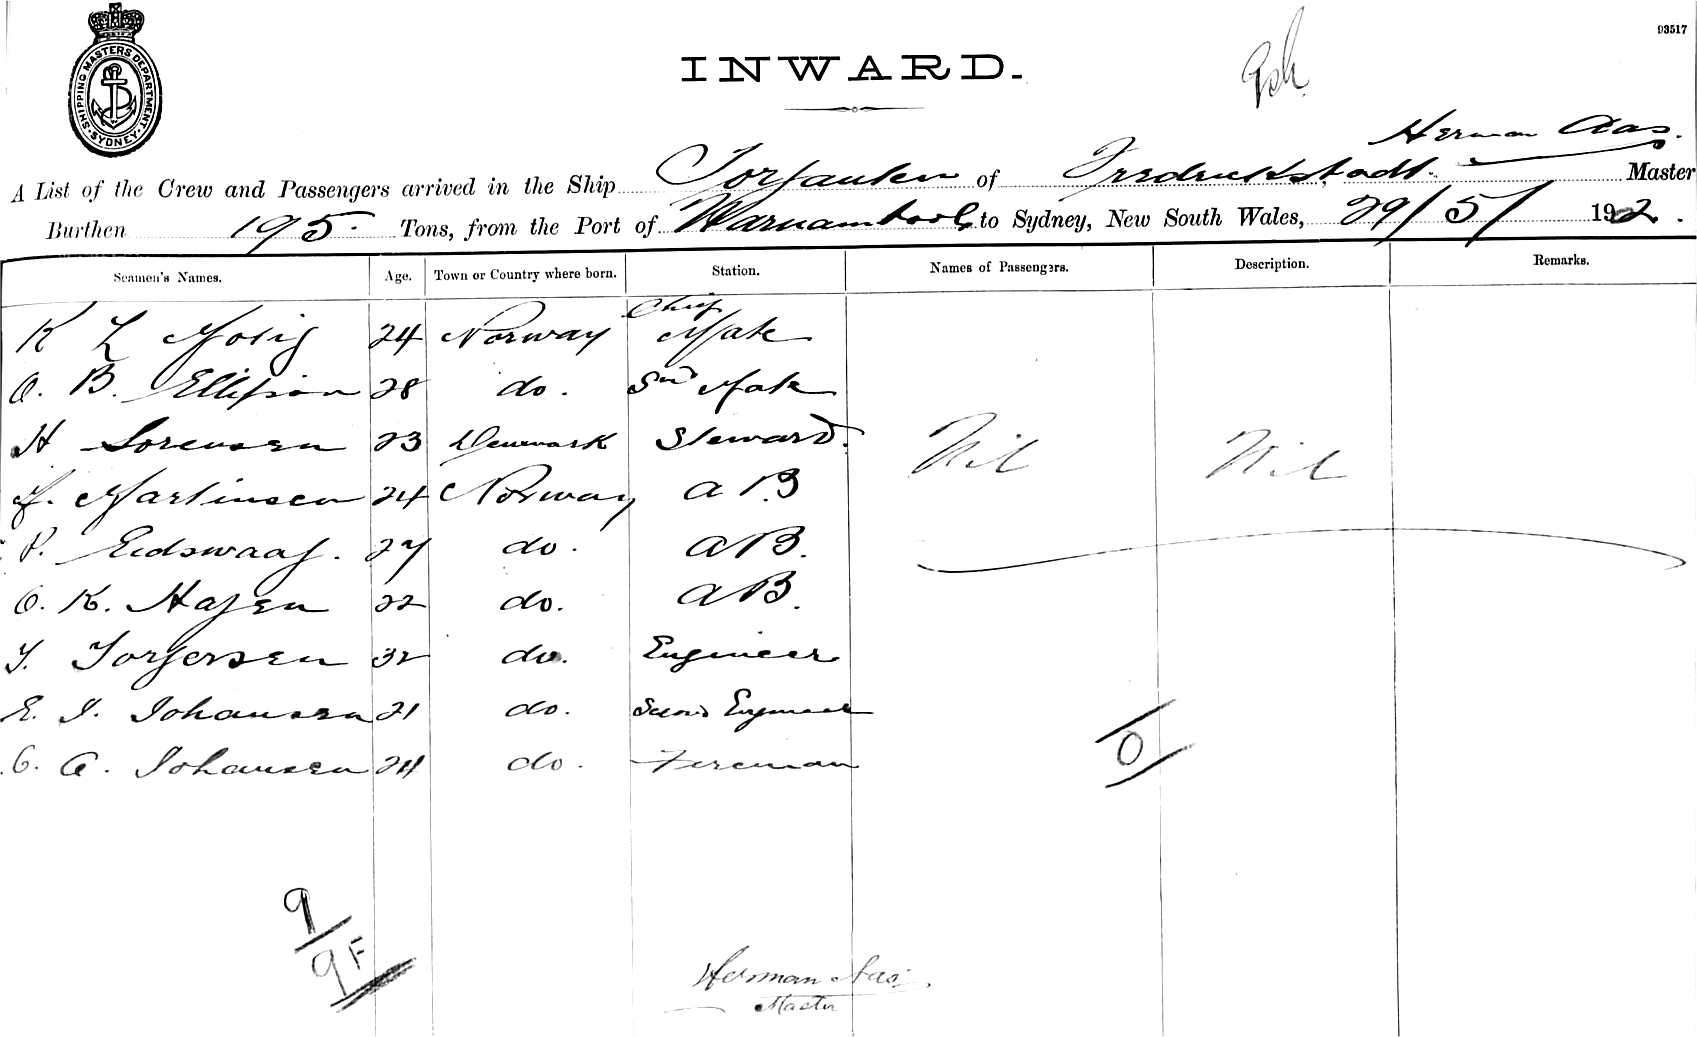 93517
SHIPPING MASTERS DEPARTMENT. SYDNEY
INWARD.
Herman Aas.
A List of the Crew and Passengers arrived in the Ship Torgauten of Fredrickstadt Master
Burthen 195. Tons, from the Port of Warnambool to Sydney, New South Wales, 29/5/ 1902.
Seamen's Names. Age. Town or Country where born. Station. Names of Passengers. Description. Remarks.
K L 24 Norway Chief Mate
O. B. Ellifson 28 do. Snd Mate
H Sorensen 23 Denmark Steward. Nil Nil
Martinsen 24 Norway AB
P. Eidswaag. 27 do. AB.
O. K. Hagen 22 do. AB.
T. Torgersen 32 do. Engineer
E. J. Johansen 21 do. Second Engineer
C. A. Johansen 24 do. Fireman
0
9
9F
Herman Aas.
Master